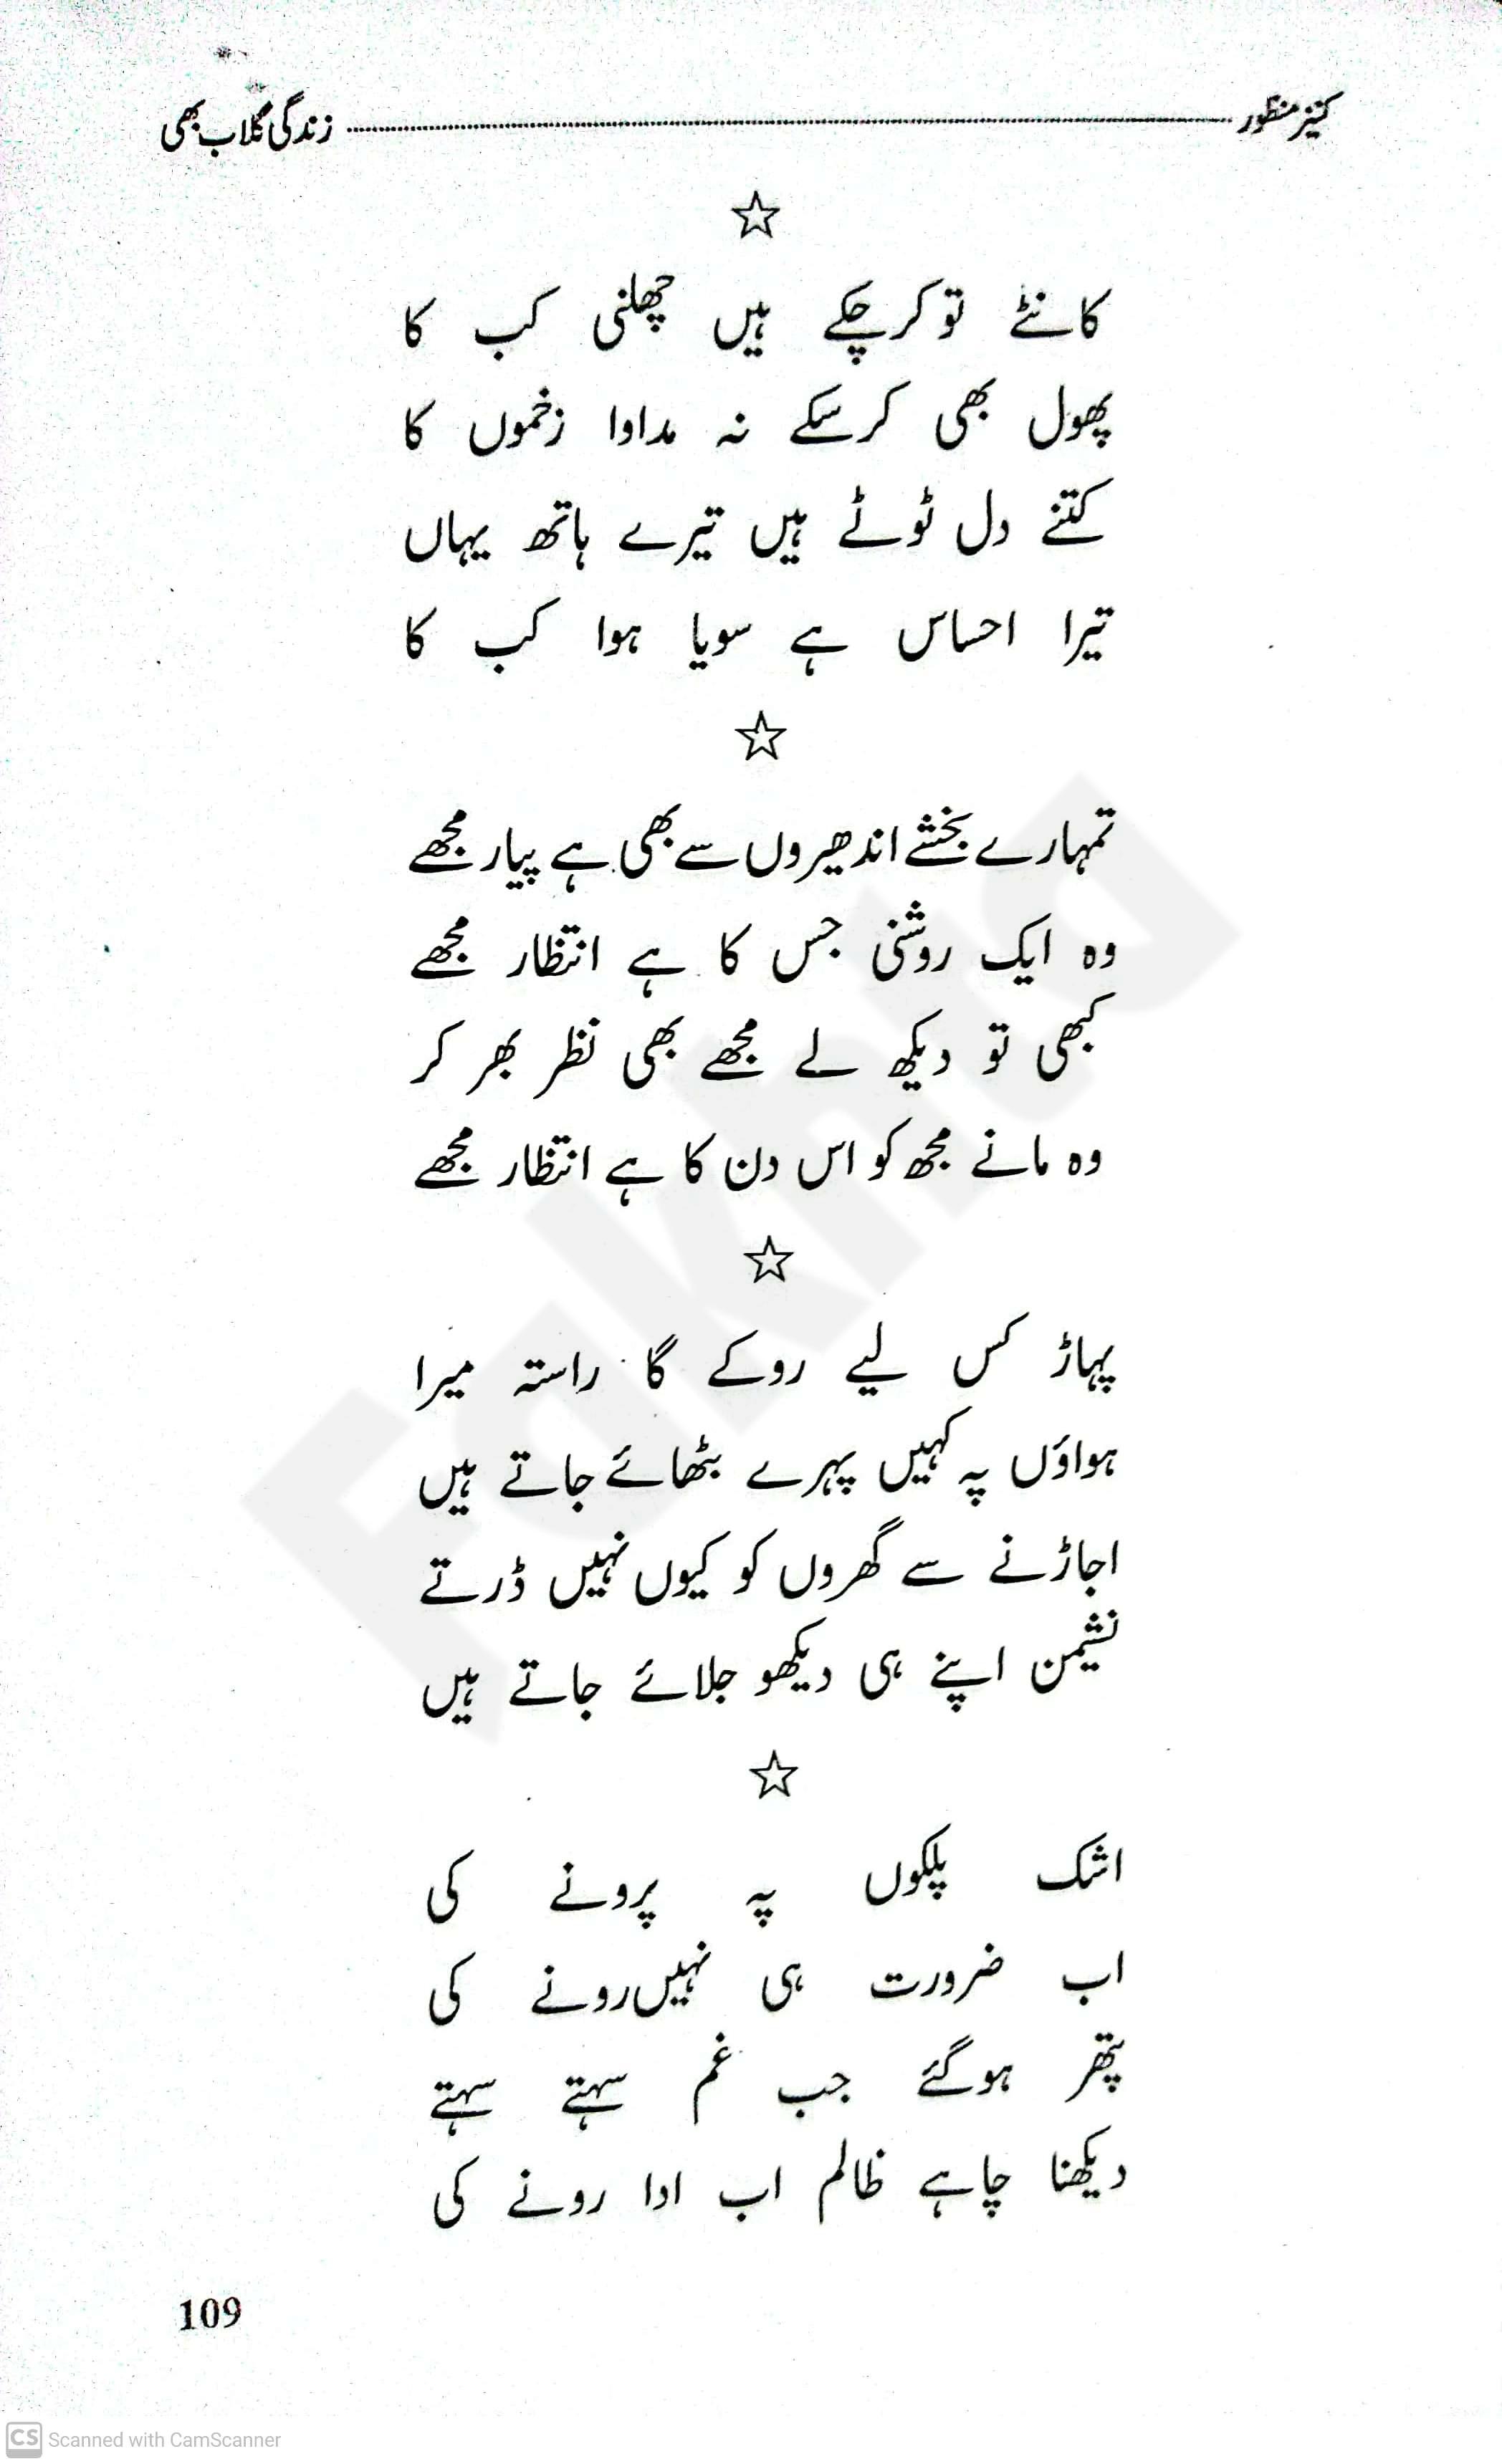 کنیز منظور ........ زندگی گلاب بھی
☆
کانٹے تو کر چکے ہیں چھلنی کب کا
پھول بھی کر سکے نہ مداوا زخموں کا
کتنے دل ٹوٹے ہیں تیرے ہاتھ یہاں
تیرا احساس ہے سویا ہوا کب کا
☆
تمہارے بخشے اندھیروں سے بھی ہے پیار مجھے
وہ ایک روشنی جس کا ہے انتظار مجھے
کبھی تو دیکھ لے مجھے بھی نظر بھر کر
وہ مانے مجھ کو اس دن کا ہے انتظار مجھے
☆
پہاڑ کس لیے روکے گا راستہ میرا
ہواؤں پہ کہیں پہرے بٹھائے جاتے ہیں
اجاڑنے سے گھروں کو کیوں نہیں ڈرتے
نشیمن اپنے ہی دیکھو جلائے جاتے ہیں
☆
اشک پلکوں پہ پرونے کی
اب ضرورت ہی نہیں رونے کی
پتھر ہوگئے جب غم سہتے سہتے
دیکھنا چاہے ظالم اب ادا رونے کی
109
Fakhra
CS Scanned with CamScanner